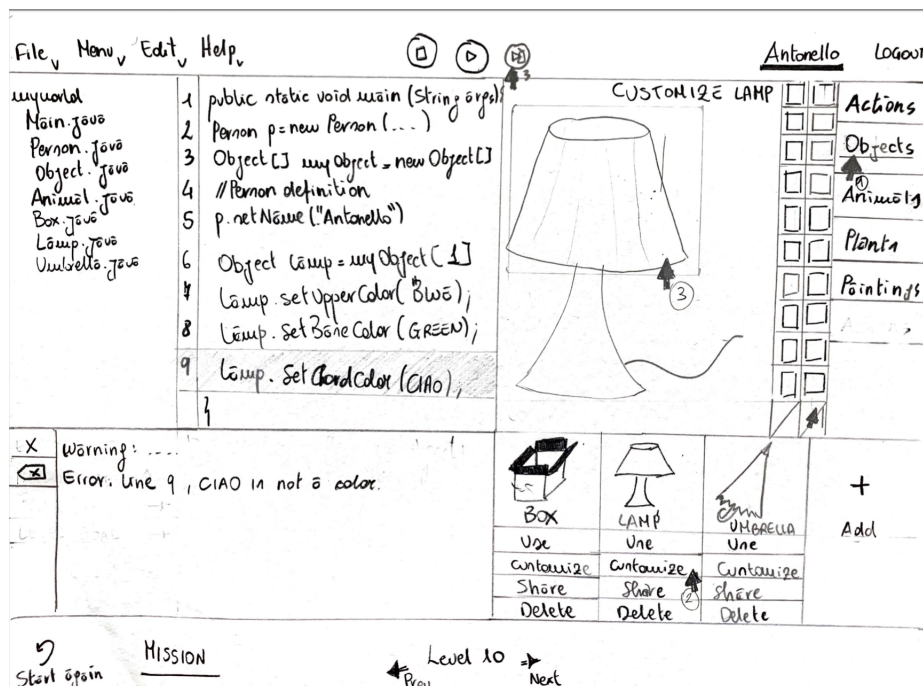 File Menu Edit Help Antonello LOGOUT
3
myworld
Main.java
Person.java
Object.java
Animal.java
Box.java
Lamp.java
Umbrella.java
1 public static void main (String args){
2 Person p = new Person (...)
3 Object[] myObject = new Object[]
4 //Person definition
5 p.setName ("Antonello")
6 Object lamp = myObject [1]
7 Lamp.setUpperColor( BLUE);
8 Lamp.SetBaseColor (GREEN);
9 Lamp.SetChordColor (CIAO);
}
CUSTOMIZE LAMP
3
Actions
Objects
1
Animals
Plants
Paintings
X Warning: ....
X Error: Line 9, CIAO is not a color.
BOX LAMP UMBRELLA
Use Use Use
Customize Customize Customize
2
Share Share Share
Delete Delete Delete
+
Add
Start again
MISSION
Level 10
Prev Next